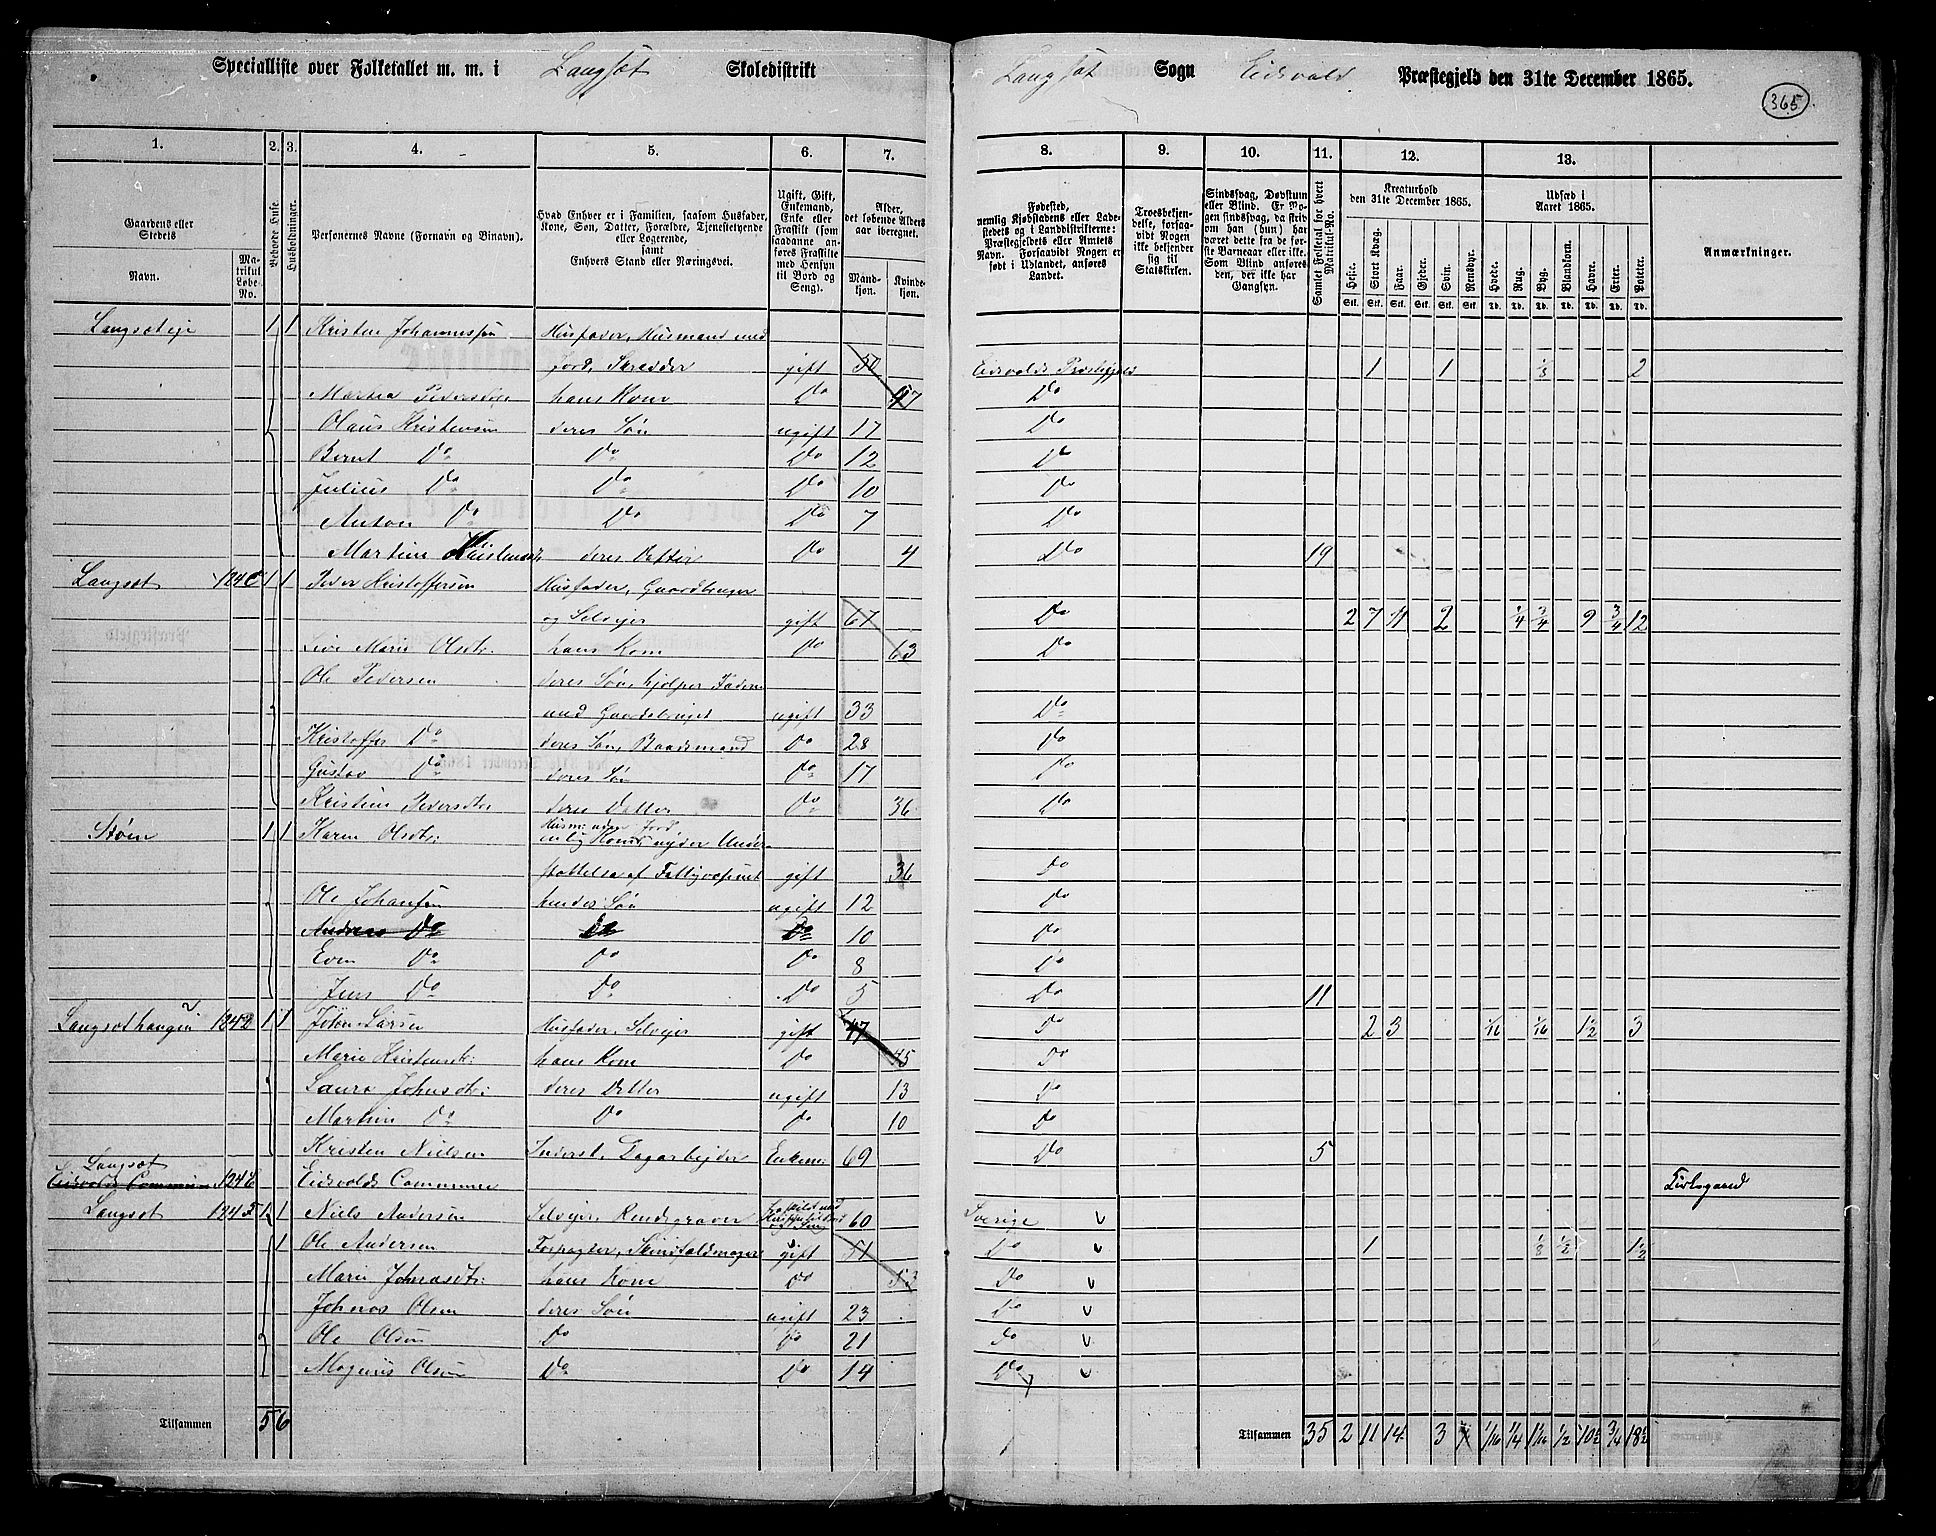 Specialliste over Folketallet m. m. i Langset Skoledistrikt Langset Sogn Eidsvold Præstegjeld den 31te December 1865.
365
1. 2. 3. 4. 5. 6. 7. 8. 9. 10. 11. 12. 13.
Gaardens eller Stedets Navn.
Matrikul Løbe-No.
Beboede Huse.
Husholdninger.
Personernes Navne (Fornavn og Binavn).
Hvad Enhver er i Familien, saasom Husfader, Kone, Søn, Datter, Forældre, Tjenestetyende eller Logerende, samt Enhvers Stand eller Næringsvei.
Ugift, Gift, Enkemand, Enke eller Fraskilt (som saadanne anføres Fraskilte med Hensyn til Bord og Seng).
Alder, det løbende Alders aar iberegnet.
Mandkjøn. Kvindekjøn.
Fødested, nemlig Kjøbstadens eller Ladestedets og i Landdistrikterne: Præstegjeldets eller Amtets Navn. Forsaavidt Nogen er født i Udlandet, anføres Landet.
Troesbekjendelse, forsaavidt Nogen ikke bekjender sig til Statskirken.
Sindssvag, Døvstum eller Blind. Er Nogen sindssvag, da skriv om han (hun) har været dette fra de første Barneaar eller ikke. Som Blind anføres den, der ikke har Gangsyn.
Samlet Folketal for hvert Matrikul-No.
Kreaturhold den 31te December 1865.
Heste. Stort Kvæg. Faar. Gjeder. Svin. Rensdyr.
Udsæd i Aaret 1865.
Hvede. Rug. Byg. Blandkorn. Havre. Erter. Poteter.
Stk. Stk. Stk. Stk. Stk. Stk. Td. Td. Td. Td. Td. Td. Td.
Anmærkninger.
Langseteje 1 1 Kristen Johannessen Husfader, Husmand med
Jord, Skredder gift 50 Eidsvolds Prestegjeld 1 1 1/8 2
Marthea Pedersdtr hans Kone Do 47 Do
Olaus Kristensen deres Søn ugift 17 Do
Bernt Do Do Do 12 Do
Julius Do Do Do 10 Do
Anton Do Do Do 7 Do
Martine Kristensdtr deres Detter Do 4 Do 19
Langset 124C 1 1 Peder Kristoffersen Husfader, Gaardbruger
og Selvejer gift 67 Do 2 7 11 2 1/4 3/4 9 3/4 12
Live Marie Olsdtr. hans Kone Do 63 Do
Ole Pedersen deres Søn, hjelper Faderen
med Gaardsbruget ugift 33 Do
Kristoffer Do deres Søn, Baadsmand Do 28 Do
Gustav Do deres Søn Do 17 Do
Kristine Pedersdtr. deres Detter Do 36 Do
Støen 1 1 Karen Olsdtr: Husm: uden Jord
Kone, nyder Under-
støttelse af Fattigvæsenet gift 36 Do
Ole Johansen hendes Søn ugift 12 Do
Andreas Do Do Do 10 Do
Even Do Do Do 8 Do
Jens Do Do Do 5 Do 11
Langsethaugen 124D 1 1 John Larsen Husfader, Selvejer gift 47 Do 2 3 1/16 1/16 1 1/2 3
Marie Kristensdtr: hans Kone Do 45 Do
Laura Johnsdtr: deres Detter ugift 13 Do
Martine Do Do Do 10 Do
Kristen Nielsen Inderst, Dagarbejder Enkem: 69 Do 5
Langset
Eidsvolds Commune 124E Eidsvolds Commune Kirkegaard
Langset 124F 1 1 Niels Andersen Selvejer, Rendegraver 60 Sverige v
1 Ole Andersen Forpagter, gift 51 Do v 1 1/8 1/2 1 1/2
Marie Johnasdtr: hans Kone Do 53 Do v
Johnas Olsen deres Søn ugift 23 Do v
Ole Olsen Do Do 21 Do v
Magnus Olsen Do Do 14 Do v
Tilsammen 5 6 Tilsammen 35 2 11 14 3 1/16 1/4 1/2 10 1/2 3/4 18 1/2